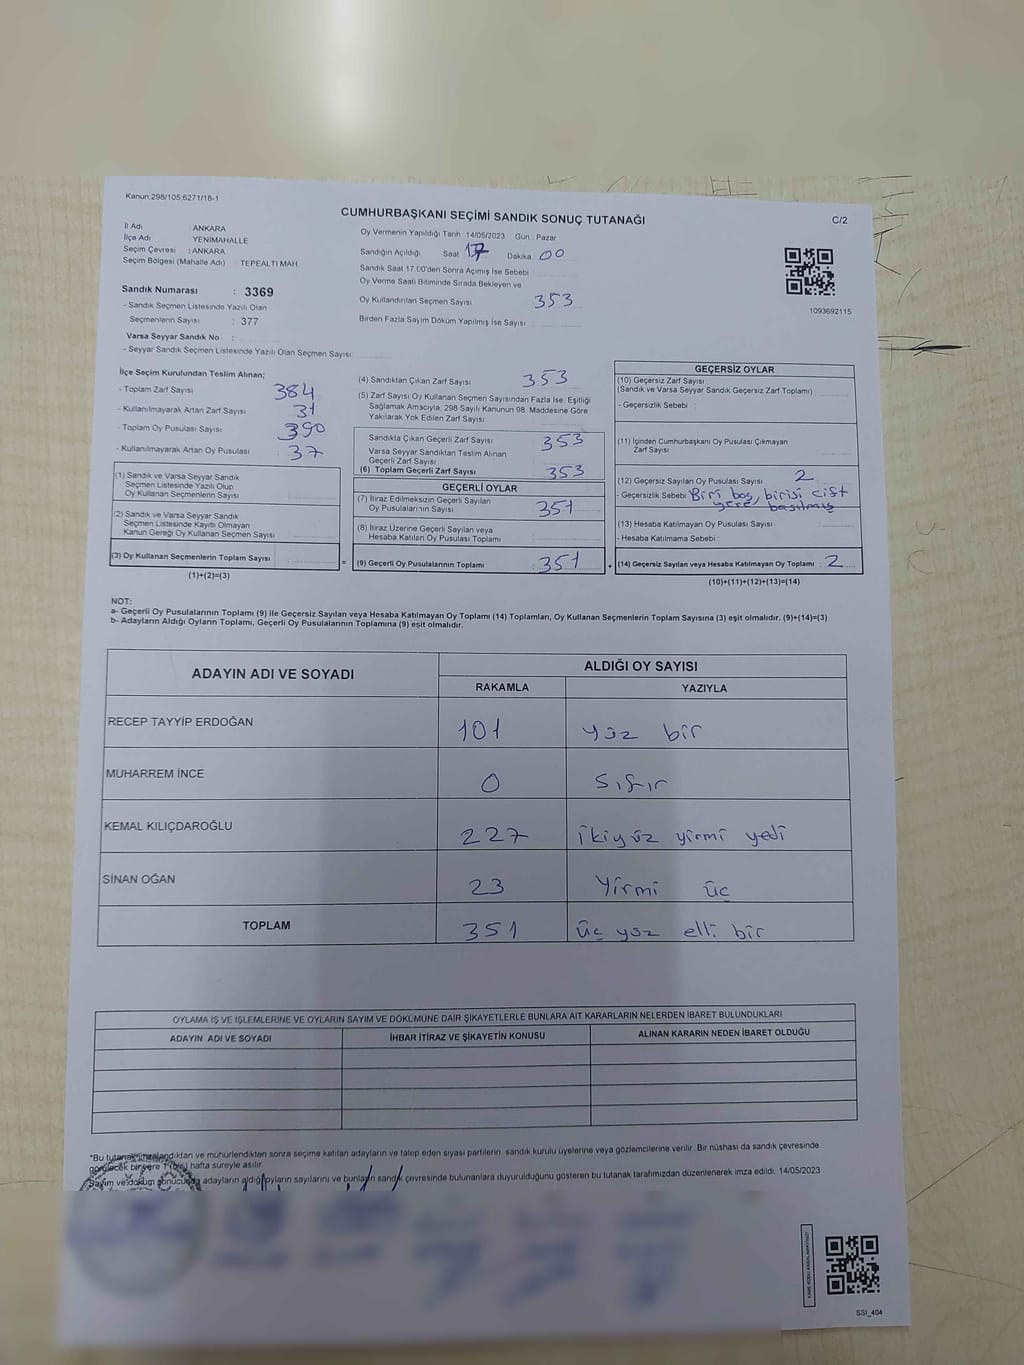 Kanun:298/105:6271/18-1
CUMHURBAŞKANI SEÇİMİ SANDIK SONUÇ TUTANAĞI
C/2
İl Adı : ANKARA
İlçe Adı YENİMAHALLE
Seçim Çevresi : ANKARA
Seçim Bölgesi (Mahalle Adı) TEPEALTI MAH.
Sandık Numarası : 3369
- Sandık Seçmen Listesinde Yazılı Olan
Seçmenlerin Sayısı : 377
Varsa Seyyar Sandık No :
- Seyyar Sandık Seçmen Listesinde Yazılı Olan Seçmen Sayısı:
Oy Vermenin Yapıldığı Tarih :14/05/2023 Gün : Pazar
Sandığın Açıldığı Saat 17 Dakika 00
Sandık Saat 17:00'den Sonra Açımış İse Sebebi
Oy Verme Saati Bitiminde Sırada Bekleyen ve
Oy Kullandırılan Seçmen Sayısı 353
Birden Fazla Sayım Döküm Yapılmış İse Sayısı :
1093692115
İlçe Seçim Kurulundan Teslim Alınan;
- Toplam Zarf Sayısı 384
- Kullanılmayarak Artan Zarf Sayısı 31
- Toplam Oy Pusulası Sayısı 390
- Kullanılmayarak Artan Oy Pusulası 37
(1) Sandık ve Varsa Seyyar Sandık
Seçmen Listesinde Yazılı Olup
Oy Kullanan Seçmenlerin Sayısı
(2) Sandık ve Varsa Seyyar Sandık
Seçmen Listesinde Kayıtlı Olmayan
Kanun Gereği Oy Kullanan Seçmen Sayısı
(3) Oy Kullanan Seçmenlerin Toplam Sayısı
(1)+(2)=(3)
(4) Sandıktan Çıkan Zarf Sayısı 353
(5) Zarf Sayısı Oy Kullanan Seçmen Sayısından Fazla İse, Eşitliği
Sağlamak Amacıyla, 298 Sayılı Kanunun 98. Maddesine Göre
Yakılarak Yok Edilen Zarf Sayısı
Sandıkta Çıkan Geçerli Zarf Sayısı 353
Varsa Seyyar Sandıktan Teslim Alınan
Geçerli Zarf Sayısı
(6) Toplam Geçerli Zarf Sayısı 353
GEÇERLİ OYLAR
(7) İtiraz Edilmeksizin Geçerli Sayılan
Oy Pusulalarının Sayısı 351
(8) İtiraz Üzerine Geçerli Sayılan veya
Hesaba Katılan Oy Pusulası Toplamı
= (9) Geçerli Oy Pusulalarının Toplamı : 351 +
GEÇERSİZ OYLAR
(10) Geçersiz Zarf Sayısı
(Sandık ve Varsa Seyyar Sandık Geçersiz Zarf Toplamı)
- Geçersizlik Sebebi :
(11) İçinden Cumhurbaşkanı Oy Pusulası Çıkmayan
Zarf Sayısı
(12) Geçersiz Sayılan Oy Pusulası Sayısı 2
- Geçersizlik Sebebi Biri boş, birisi çift
yere basılmış
(13) Hesaba Katılmayan Oy Pusulası Sayısı
- Hesaba Katılmama Sebebi :
(14) Geçersiz Sayılan veya Hesaba Katılmayan Oy Toplamı : 2
(10)+(11)+(12)+(13)=(14)
NOT:
a- Geçerli Oy Pusulalarının Toplamı (9) ile Geçersiz Sayılan veya Hesaba Katılmayan Oy Toplamı (14) Toplamları, Oy Kullanan Seçmenlerin Toplam Sayısına (3) eşit olmalıdır. (9)+(14)=(3)
b- Adayların Aldığı Oyların Toplamı, Geçerli Oy Pusulalarının Toplamına (9) eşit olmalıdır.
ADAYIN ADI VE SOYADI
ALDIĞI OY SAYISI
RAKAMLA YAZIYLA
RECEP TAYYİP ERDOĞAN 101 yüz bir
MUHARREM İNCE 0 sıfır
KEMAL KILIÇDAROĞLU 227 ikiyüz yirmi yedi
SİNAN OĞAN 23 Yirmi üç
TOPLAM 351 üç yüz elli bir
OYLAMA İŞ VE İŞLEMLERİNE VE OYLARIN SAYIM VE DÖKÜMÜNE DAİR ŞİKAYETLERLE BUNLARA AİT KARARLARIN NELERDEN İBARET BULUNDUKLARI
ADAYIN ADI VE SOYADI İHBAR İTİRAZ VE ŞİKAYETİN KONUSU ALINAN KARARIN NEDEN İBARET OLDUĞU
*Bu tutanak imzalandıktan ve mühürlendikten sonra seçime katılan adayların ve talep eden siyasi partilerin sandık kurulu üyelerine veya gözlemcilerine verilir. Bir nüshası da sandık çevresinde
görülecek bir yere 1 (bir) hafta süreyle asılır.
Sayım ve döküm sonucunda adayların aldığı oyların sayılarını ve bunların sandık çevresinde bulunanlara duyurulduğunu gösteren bu tutanak tarafımızdan düzenlenerek imza edildi. 14/05/2023
SSI_404